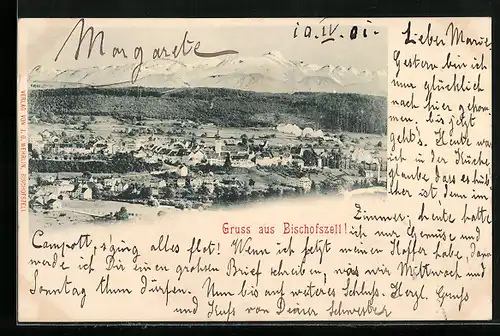 Margarete
10. IV. 01.
Liebe Marie
Gestern bin ich
nun glücklich
nach hier gekom
men, bis jetzt
geht's. Heute war
ich in der Küche
glaube das es küh
ler ist dem im
Zimmer, heute hatte
ich nur Gemüse und
VERLAG VON J. G. WEHRLIN, BISCHOFSZELL
Gruss aus Bischofszell!
Compott, es ging alles flot! Wenn ich jetzt meinen Koffer habe, dann
werde ich Dir einen grossen Brief schreiben, was wir Mittwoch und
Sonntag thun dürfen. Nun bis auf weiteres Schluss. Herzl. Gruss
und Kuss von Deiner Schwester